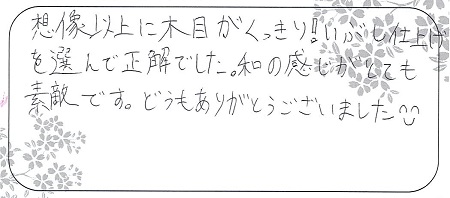 想像以上に木目がくっきり!いぶし仕上げ
を選んで正解でした。和の感じがとても
素敵です。どうもありがとうございました